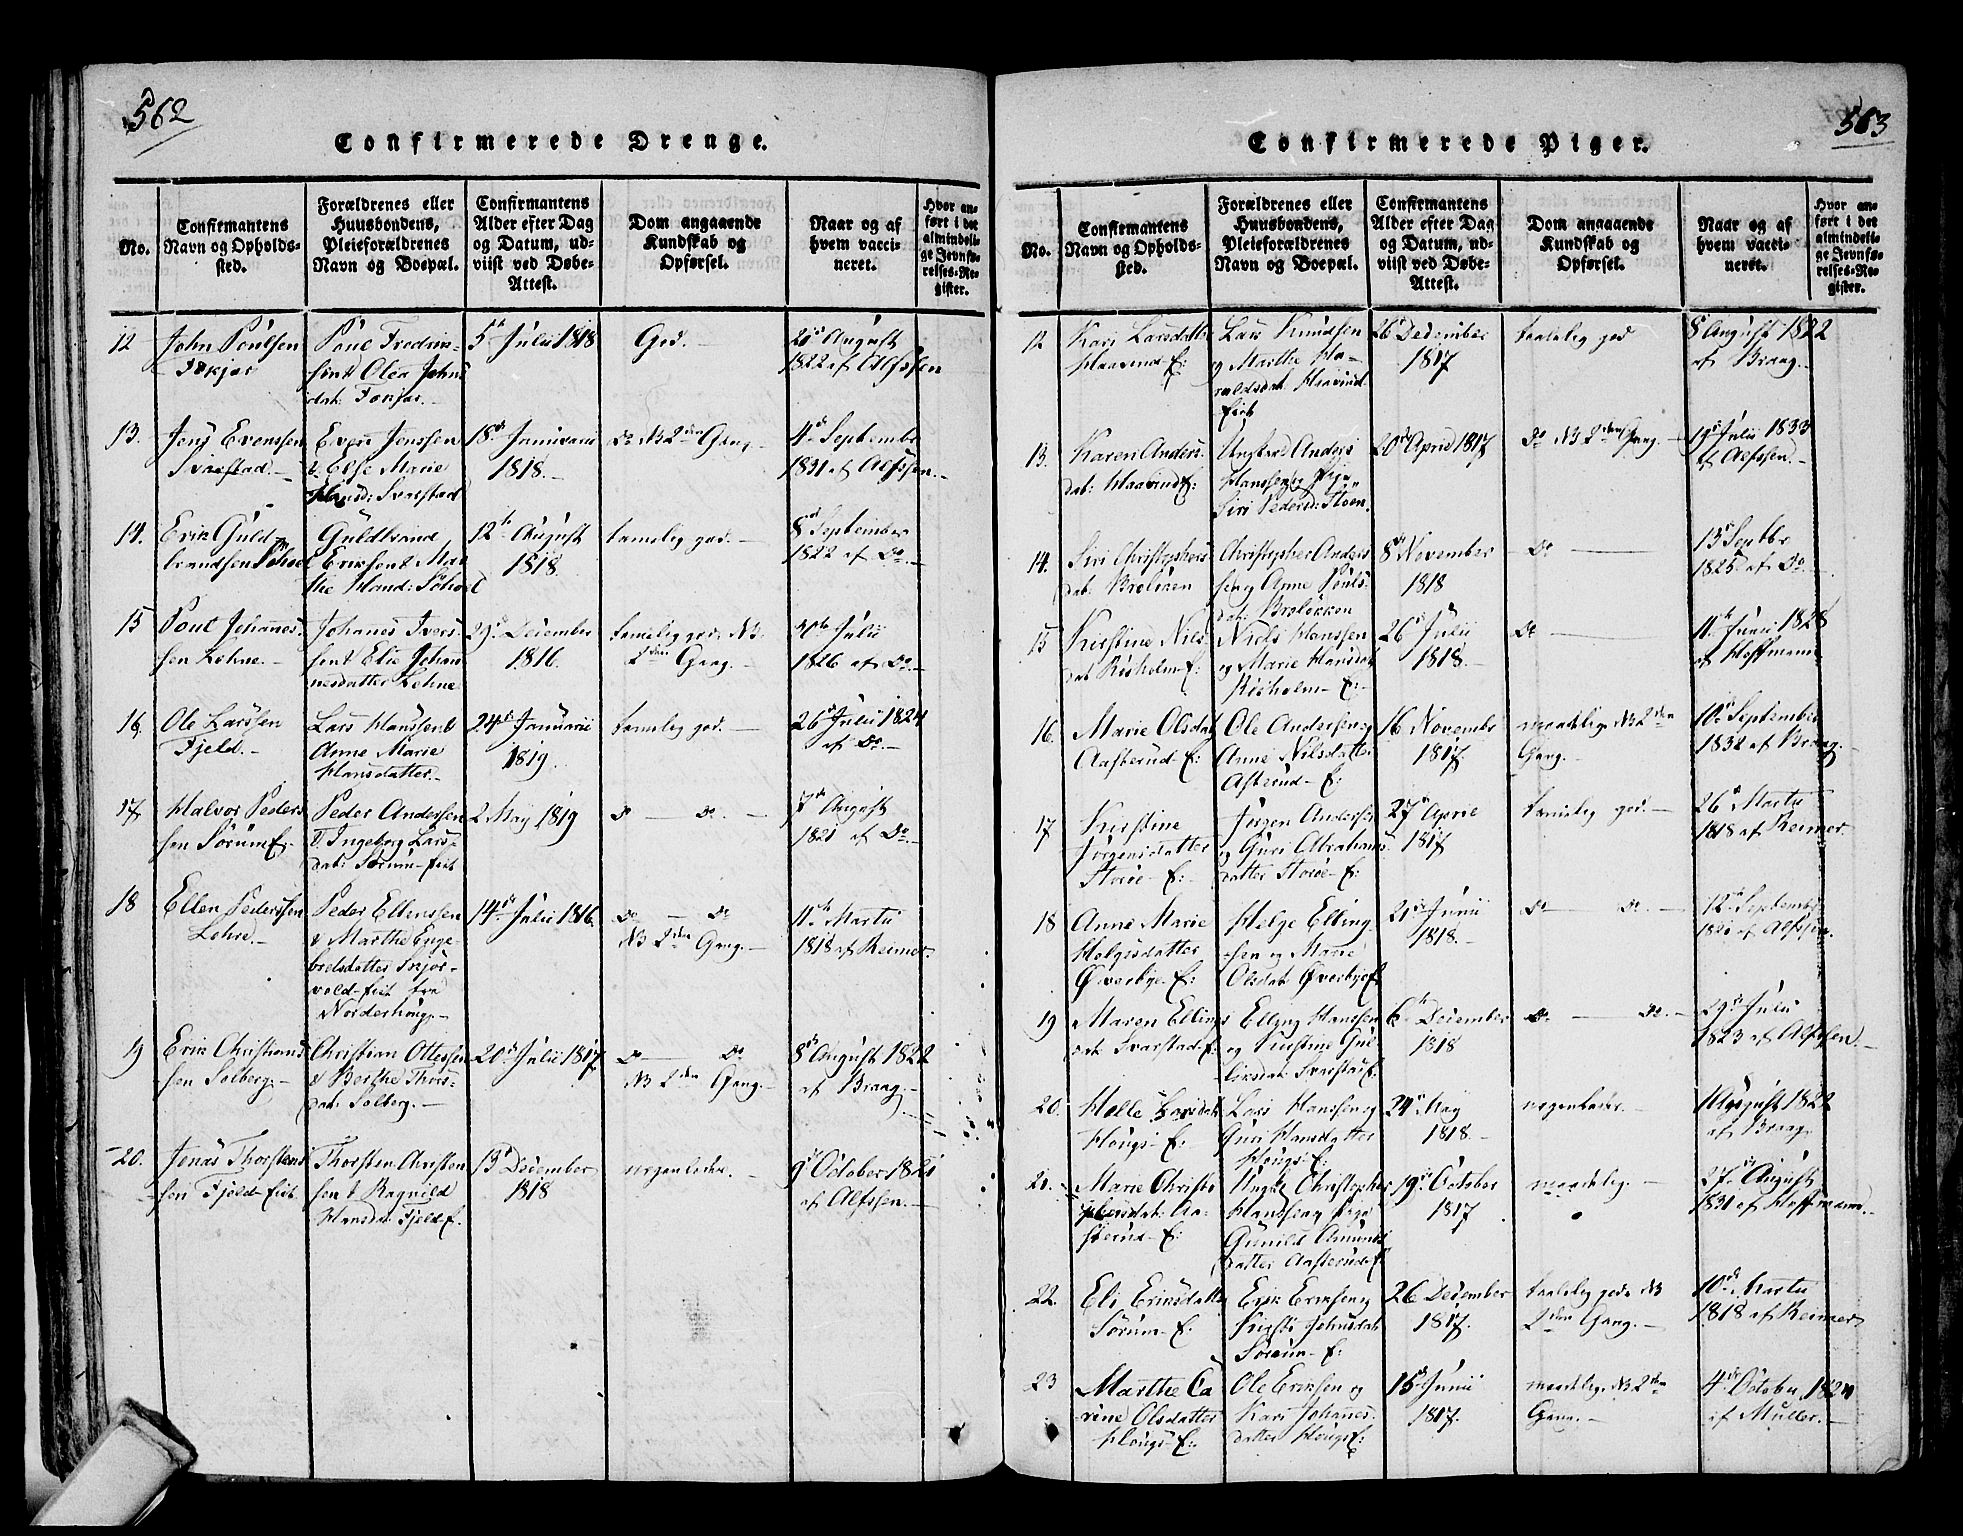 562
Confirmerede Drenge.
No.
Confirmantens
Navn og Opholds-
sted.
Forældrenes eller
Huusbondens,
Pleieforældrenes
Navn og Boepæl.
Confirmantens
Alder efter Dag
og Datum, ud-
viist ved Døbe-
Attest.
Dom angaaende
Kundskab og
Opførsel.
Naar og af
hvem vacci-
neret.
Hvor an-
ført i det
almindeli-
ge Jevnfø-
relses-Re-
gister.
12
John Poulsen
5te Julii 1818
God.
21de August
1822 af Alfssen
13.
Jens Evenssen
Svarstad.
Even Jenssen
& Else Marie
Hansd: Svarstad
18de Januarii
1818.
Do NB 2den Gang.
11te September
1831 af Alfssen.
14.
Erik Guld-
brandsen
Guldbrand
Eriksen & Mar
the Hansd:
12te August
1818.
temelig god.
8de September
1822 af Do.
15
Poul Johannes-
sen Lehne.
Johanes Ivers
sen & Elie Johan
nesdatter Lehne
29de December
1816.
temelig god. NB.
2den Gang.
20de Julii
1826 af Do.
16.
Ole Larssen
Fjeld.
Lars Hanssen &
Anne Marie
Hansdatter.
24de Januarii
1819.
temelig god.
26de Julii 1824
af Do.
17
Halvor Peders
sen Sørum E.
Peder Anderssen
& Ingeborg Lars-
dat: Sørum-Eiet
2 May 1819
Do — Do.
7de August
1821 af Do.
18
Ellen Pederssen
Lehne.
Peder Ellenssen
& Marthe Enge
bretsdatter
vold-Eiet fra
Norderhoug.
14de Julii 1816.
Do — Do
NB 2den Gang.
11te Martii
1818 af Reimer.
19
Erik Christians
sen Solberg.
Christian Ottessen
& Berthe Thors-
dat: Solberg.
20de Julii 1817
Do — Do
NB 2den Gang.
8de August 1822
af Braag.
20.
Jonas Thorstens
sen Fjeld-Eiet
Thorsten Christen
sen & Ragnild
Hansdat: Fjeld E.
13de December
1818
nogenledes.
9de October 1821
af Alfssen.
563
Confirmerede Piger.
No.
Confirmantens
Navn og Opholds-
sted.
Forældrenes eller
Huusbondens,
Pleieforældrenes
Navn og Boepæl.
Confirmantens
Alder efter Dag
og Datum, ud-
viist ved Døbe-
Attest.
Dom angaaende
Kundskab og
Opførsel.
Naar og af
hvem vacci-
neret.
Hvor an-
ført i det
almindeli-
ge Jevnfø-
relses-Re-
gister.
12
Kari Larsdatter
Haavind E:
Lars Knudsen
og Marthe Ha-
raldsdat: Haavind
Eiet
26de December
1817
taalelig god
8de August 1822
af Braag.
13.
Karen Anders
dat: Haavind E:
Ungkarl Anders
Hanssen og Pige
Siri Pedersd: Støen.
20de April 1817
Do NB 2den Gang.
19de Julii 1833
af Alfssen.
14.
Siri Christophers
dat: Braløkken
Christopher Anders
sen og Anne Pouls
dat: Braløkken
8de November
1818
Do
13de Septbr
1825 af Do.
15
Kirstine Nils
dat: Risholm E:
Niels Hanssen
og Marie Hansdat:
Risholm E:
26de Julii
1818.
Do
11te Junii 1828
af Hoffmann
16.
Marie Olsdat:
Aasterud E:
Ole Anderssen og
Anne Nilsdatter
Asterud E:
16 November
1817.
maadelig. NB 2den
Gang.
10de September
1832 af Braag.
17
Kirstine
Jørgensdatter
Storøe E:
Jørgen Anderssen
og Guri Abrahams
datter Storøe E:
27de April
1817
temelig god.
26de Martii
1818 af Reimer
18
Anne Marie
Helgesdatter
Øverbye E:
Helge Elling
sen og Marie
Olsdat: Øverbye E:
21de Junii
1818.
Do — Do.
12te September
af Alfssen.
19
Maren Ellings
dat: Svarstad E:
Elling Hanssen
6te December
1818
Do — Do.
29de Julii
1823 af Alfssen.
20.
Helle Larsdat:
Hougs E:
Lars Hanssen og
Guri Hansdatter
Hougs E:
24de May
1818.
nogenledes.
1 August 1822
af Braag
21.
Marie Christo
phersdat: Aa-
sterud E:
Ungk: Christopher
Hanssen og Pige
Gunild Amunds
datter Aasterud E:
19de October
1817
maadelig.
27de August
1831 af Hoffmann.
22.
Eli Eriksdatter
Sørum E:
Erik Erikssen og
Kirsti Johnsdat:
Sørum E:
26 December
1817.
taalelig god. NB
2den Gang.
10de Martii
1818 af Reimer
23
Marthe Ca
rine Olsdatter
Hougs E:
Ole Eriksen og
Kari Johannes
datter Hougs E:
15de Junii
1817.
maadelig. NB 2den
Gang.
4de October 1824
af Muller.